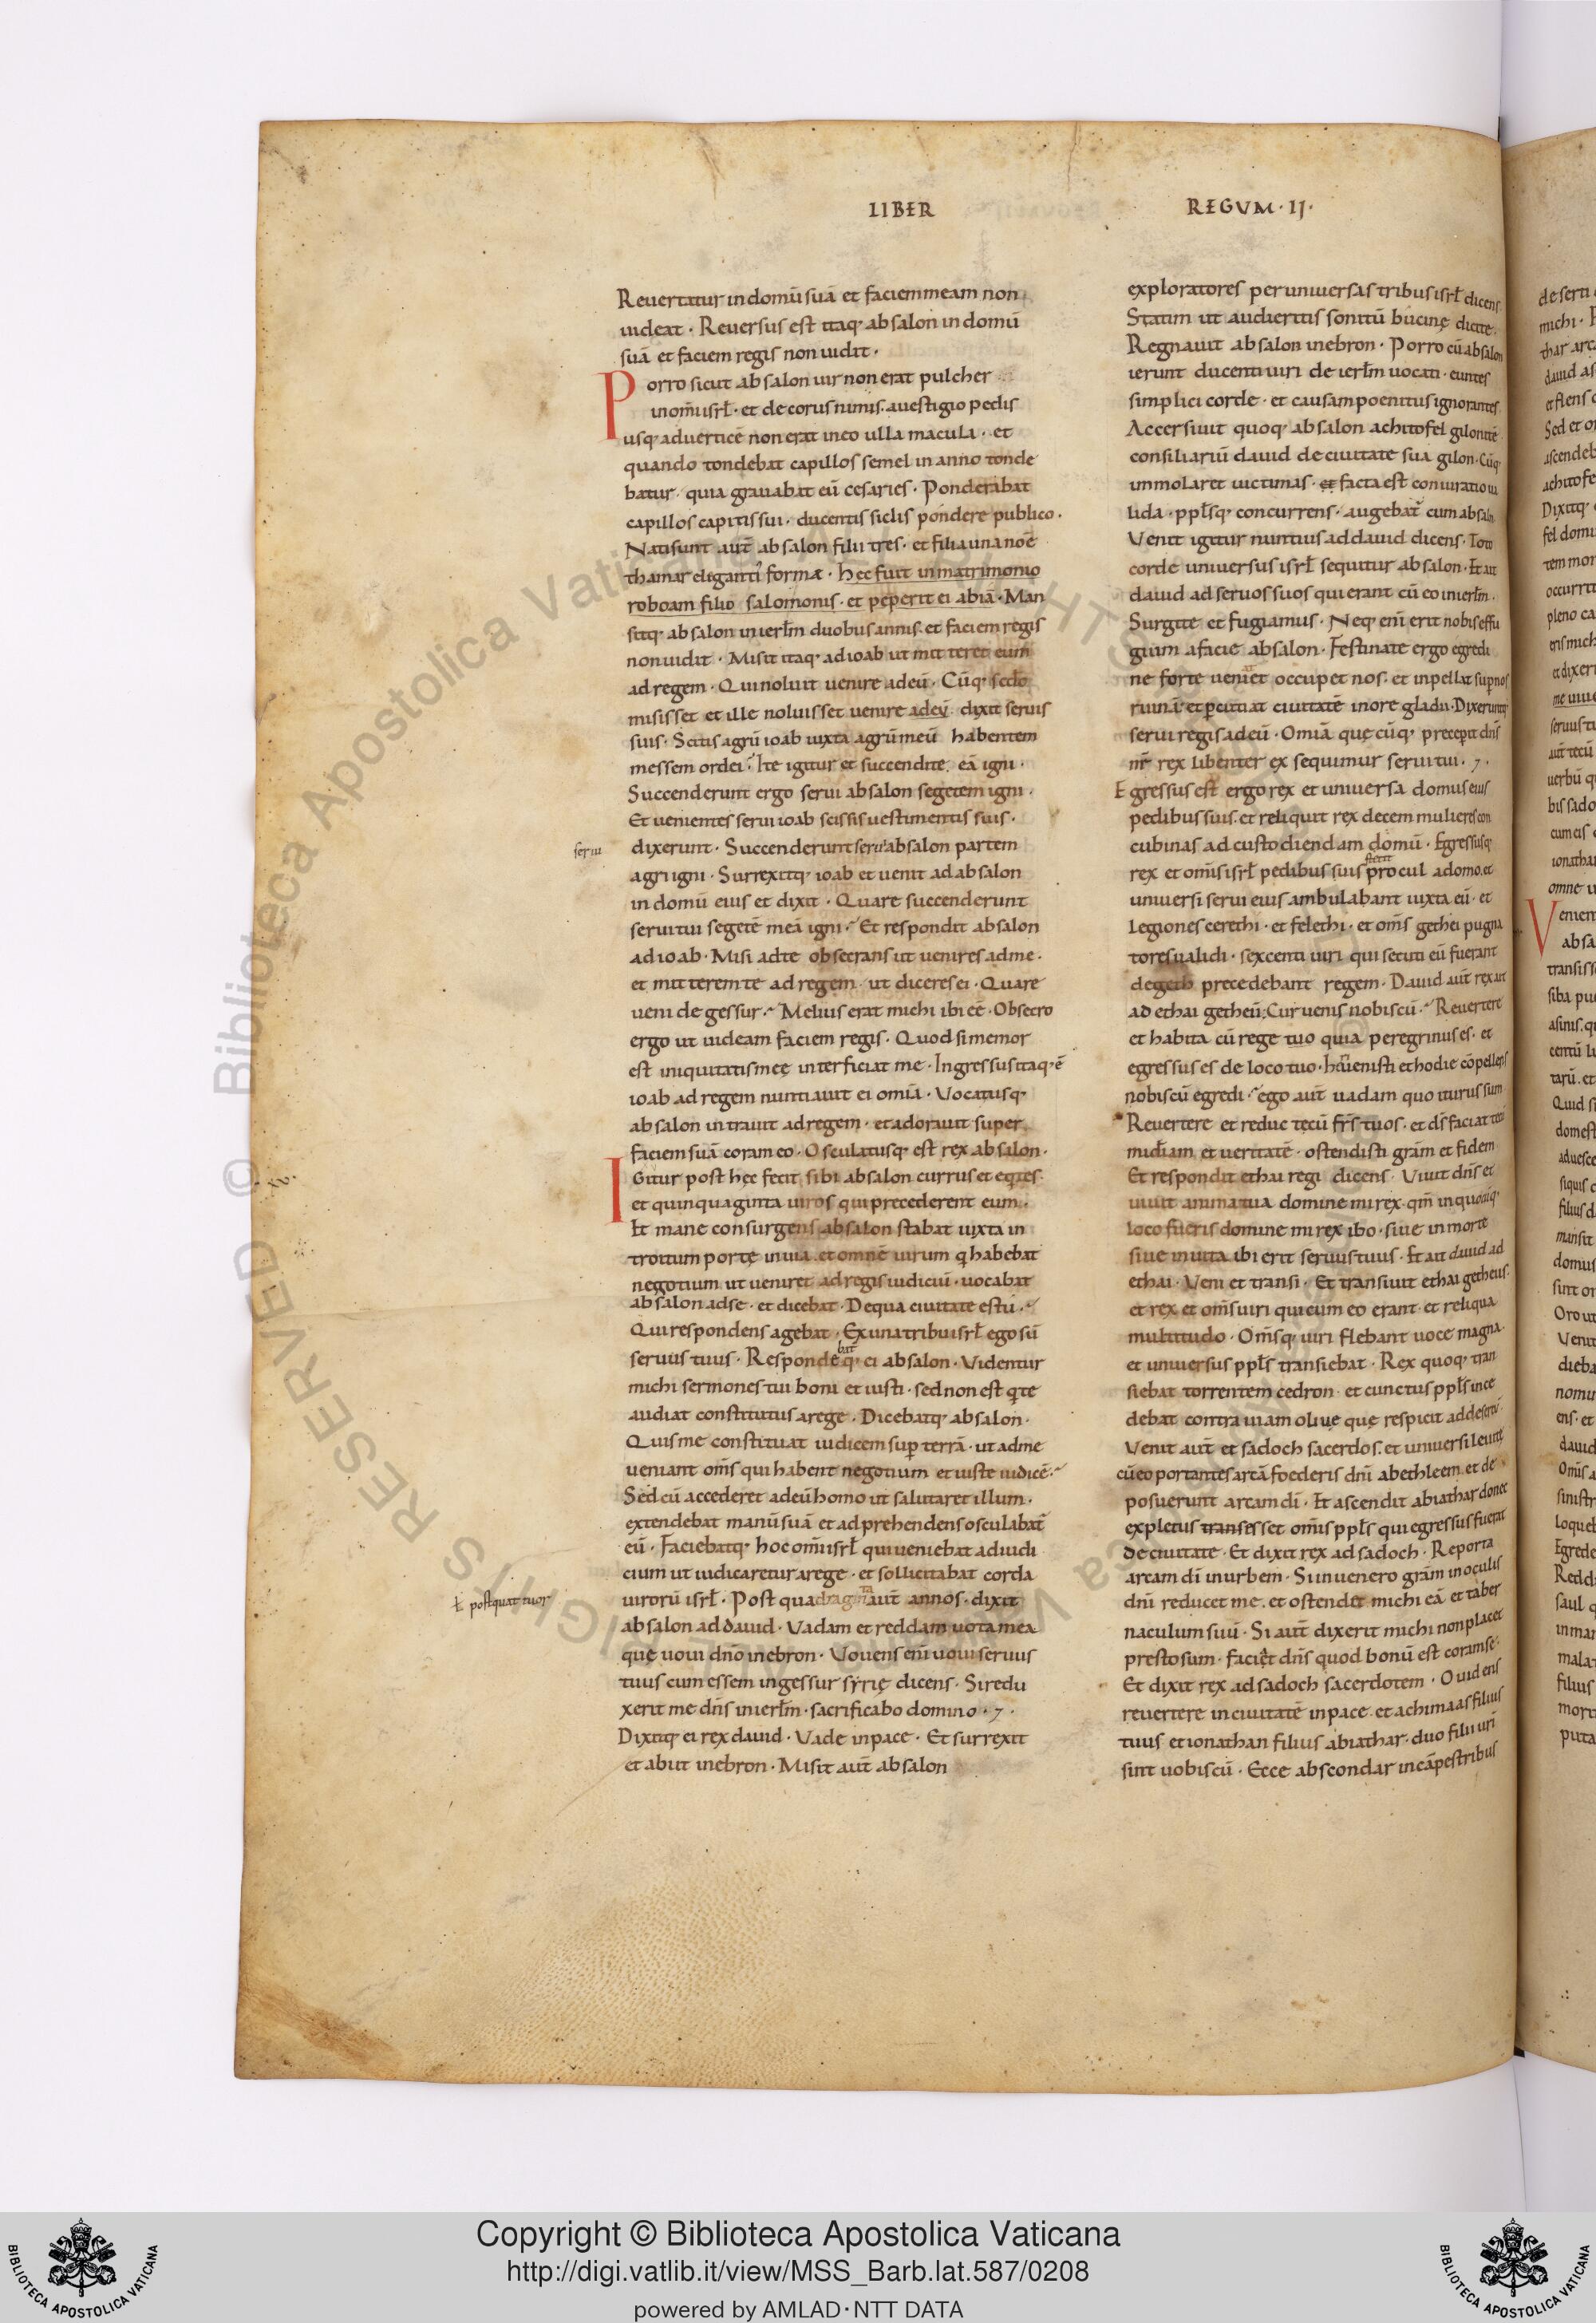 LIBER
REGVM · II ·
Reuertatur in domū suā et faciem meam non
uideat · Reuersus est itaq; absalon in domū
suā et faciem regis non uidit ·
Porro sicut absalon uir non erat pulcher
in om̄i isrł · et decorus nimis. a uestigio pedis
usq; ad uerticē non erat in eo ulla macula · et
quando tondebat capillos semel in anno tonde
batur · quia grauabat eū cesaries · Ponderabat
capillos capitis sui · ducentis siclis pondere publico ·
Nati sunt aut̄ absalon filii tres · et filia una noē
thamar eliganti formæ · hęc fuit in matrimonio
roboam filio salomonis · et peperit ei abiā · Man
sitq; absalon in ierłm duobus annis. et faciem regis
non uidit · Misit itaq; ad ioab ut mitteret eum
ad regem · Qui noluit uenire ad eū · Cūq; sc̄do
misisset et ille noluisset uenire ad eū · dixit seruis
suis · Scitis agrū ioab iuxta agrū meū habentem
messem ordei · Ite igitur et succendite eā igni ·
Succenderunt ergo serui absalon segetem igni ·
Et uenientes serui ioab scissis uestimentis suis ·
serui
dixerunt · Succenderunt serui absalon partem
agri igni · Surrexitq; ioab et uenit ad absalon
in domū eius et dixit · Quare succenderunt
serui tui segetē meā igni · Et respondit absalon
ad ioab · Misi ad te obsecrans ut uenires ad me ·
et mitterem te ad regem · ut diceres ei · Quare
ueni de gessur · Melius erat michi ibi eē · Obsecro
ergo ut uideam faciem regis · Quod si memor
est iniquitatis meę interficiat me · Ingressus itaq; ē
ioab ad regem nuntiauit ei omia · Vocatusq;
absalon intrauit ad regem · et adorauit super
faciem suā coram eo · Osculatusq; est rex absalon ·
Igitur post hęc fecit sibi absalon currus et eq̄tes
et quinquaginta uiros qui precederent eum ·
Et mane consurgens absalon stabat iuxta in
troitum portę in uia. et omnē uirum q habebat
negotium ut ueniret ad regis iudiciū · uocabat
absalon ad se · et dicebat · De qua ciuitate es tu ·
Qui respondens agebat · Ex una tribu isrł ego sū
bat
seruus tuus · Respondeq; ei absalon · Videntur
michi sermones tui boni et iusti · sed non est q te
audiat constitutus a rege · Dicebatq; absalon ·
Quis me constituat iudicem sup̄ terrā · ut ad me
ueniant om̄s qui habent negotium et iuste iudicē ·
Sed cū accederet ad eū homo ut salutaret illum ·
extendebat manū suā et adprehendens osculabat̄
eū · Faciebatq; hoc om̄i isrł qui ueniebat ad iudi
cium ut iudicaretur a rege · et sollicitabat corda
ł post quattuor
uirorū isrł · Post quadraginta aut̄ annos · dixit
absalon ad dauid · Vadam et reddam uota mea
quę uoui dn̄o in ebron · Vouens eni uouit seruus
tuus cum essem in gessur syrię dicens · Si redu
xerit me dn̄s in ierłm · sacrificabo domino · 7 ·
Dixitq; ei rex dauid · Vade in pace · Et surrexit
et abiit in ebron · Misit aut̄ absalon
exploratores per uniuersas tribus isrł dicens
Statim ut audieritis sonitū bucinę dicite ·
Regnauit absalon in ebron · Porro cū absalon
ierunt ducenti uiri de ierłm uocati · euntes
simplici corde · et causam poenitus ignorantes
Accersiuit quoq; absalon achitofel gilonitē
consiliariū dauid de ciuitate sua gilon · Cūq;
immolaret uictimas · et facta est coniuratio ua
lida · ppłsq; concurrens · augebat̄ cum absalon
Venit igitur nuntius ad dauid dicens · Toto
corde uniuersus isrł sequitur absalon · Et ait
dauid ad seruos suos qui erant cū eo in ierłm ·
Surgite et fugiamus · Neq; eni erit nobis effu
gium a facie absalon · Festinate ergo egredi
ne forte ueniet occupet nos · et inpellat sup nos
ruinā et p̄cutiat ciuitatē in ore gladii · Dixeruntq;
serui regis ad eū · Omīa quecūq; precepit dn̄s
nr̄ rex libenter exsequimur serui tui · 7 ·
Egressus est ergo rex et uniuersa domus eius
pedibus suis. et reliquit rex decem mulieres con
cubinas ad custodiendam domū · Egressusq;
stetit
rex et om̄is isrł pedibus suis procul a domo. et
uniuersi serui eius ambulabant iuxta eū · et
legiones cerethi · et felethi · et om̄s gethei pugna
tores ualidi · sexcenti uiri qui secuti eū fuerant
de geth precedebant regem · Dauid aut̄ rex ait
ad ethai getheū; Cur uenis nobiscū · Reuertere
et habita cū rege tuo quia peregrinus es · et
egressus es de loco tuo · heri uenisti et hodie cōpelleris
nobiscū egredi · ego aut̄ uadam quo iturus sum
Reuertere et reduc tecū frs̄ tuos · et ds̄ faciat tecū
mīdiam et ueritatē · ostendisti grām et fidem
Et respondit ethai regi dicens · Viuit dn̄s et
uiuit anima tua domine mi rex · qm̄ in quocūq;
loco fueris domine mi rex ibo · siue in morte
siue in uita ibi erit seruus tuus · Et ait dauid ad
ethai · Veni et transi · Et transiuit ethai getheus ·
et rex et om̄s uiri qui cum eo erant · et reliqua
multitudo · Om̄sq; uiri flebant uoce magna ·
et uniuersus ppłs transiebat · Rex quoq; tran
siebat torrentem cedron · et cunctus ppłs ince
debat contra uiam oliuę quę respicit ad desertū ·
Venit aut̄ et sadoch sacerdos. et uniuersi leuitę
cū eo portantes arcā foederis dn̄i a bethleem. et de
posuerunt arcam di · Et ascendit abiathar donec
expletus transisset om̄is ppłs qui egressus fuerat
de ciuitate · Et dixit rex ad sadoch · Reporta
arcam di in urbem · Si inuenero grām in oculis
dn̄i reducet me. et ostendet michi eā et taber
naculum suū · Si aut̄ dixerit michi non placet
presto sum · faciet dn̄s quod bonū est coram se ·
Et dixit rex ad sadoch sacerdotem · O uidens
reuertere in ciuitatē in pace. et achimaas filius
tuus et ionathan filius abiathar · duo filii uri
sint uobiscū · Ecce abscondar in cāpestribus
Copyright © Biblioteca Apostolica Vaticana
http://digi.vatlib.it/view/MSS_Barb.lat.587/0208
powered by AMLAD · NTT DATA
BIBLIOTECA APOSTOLICA VATICANA
BIBLIOTECA APOSTOLICA VATICANA